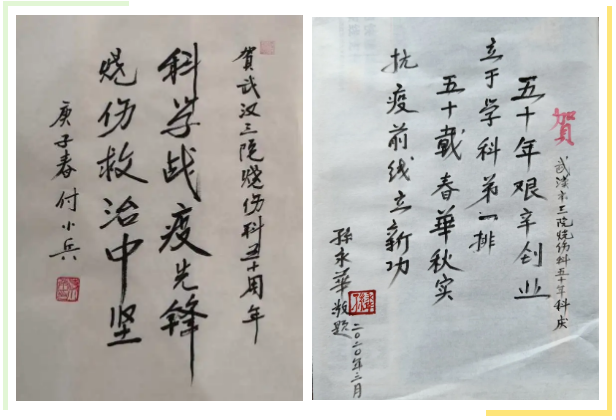 賀武汉三院烧伤科五十周年
科学战疫先锋
烧伤救治中坚
庚子春 付小兵
賀
武漢市三院烧伤科五十年科庆
五十年艰辛创业
立于学科第一排
五十載春華秋实
抗疫前线立新功
孫永華敬題
二〇二〇年二月